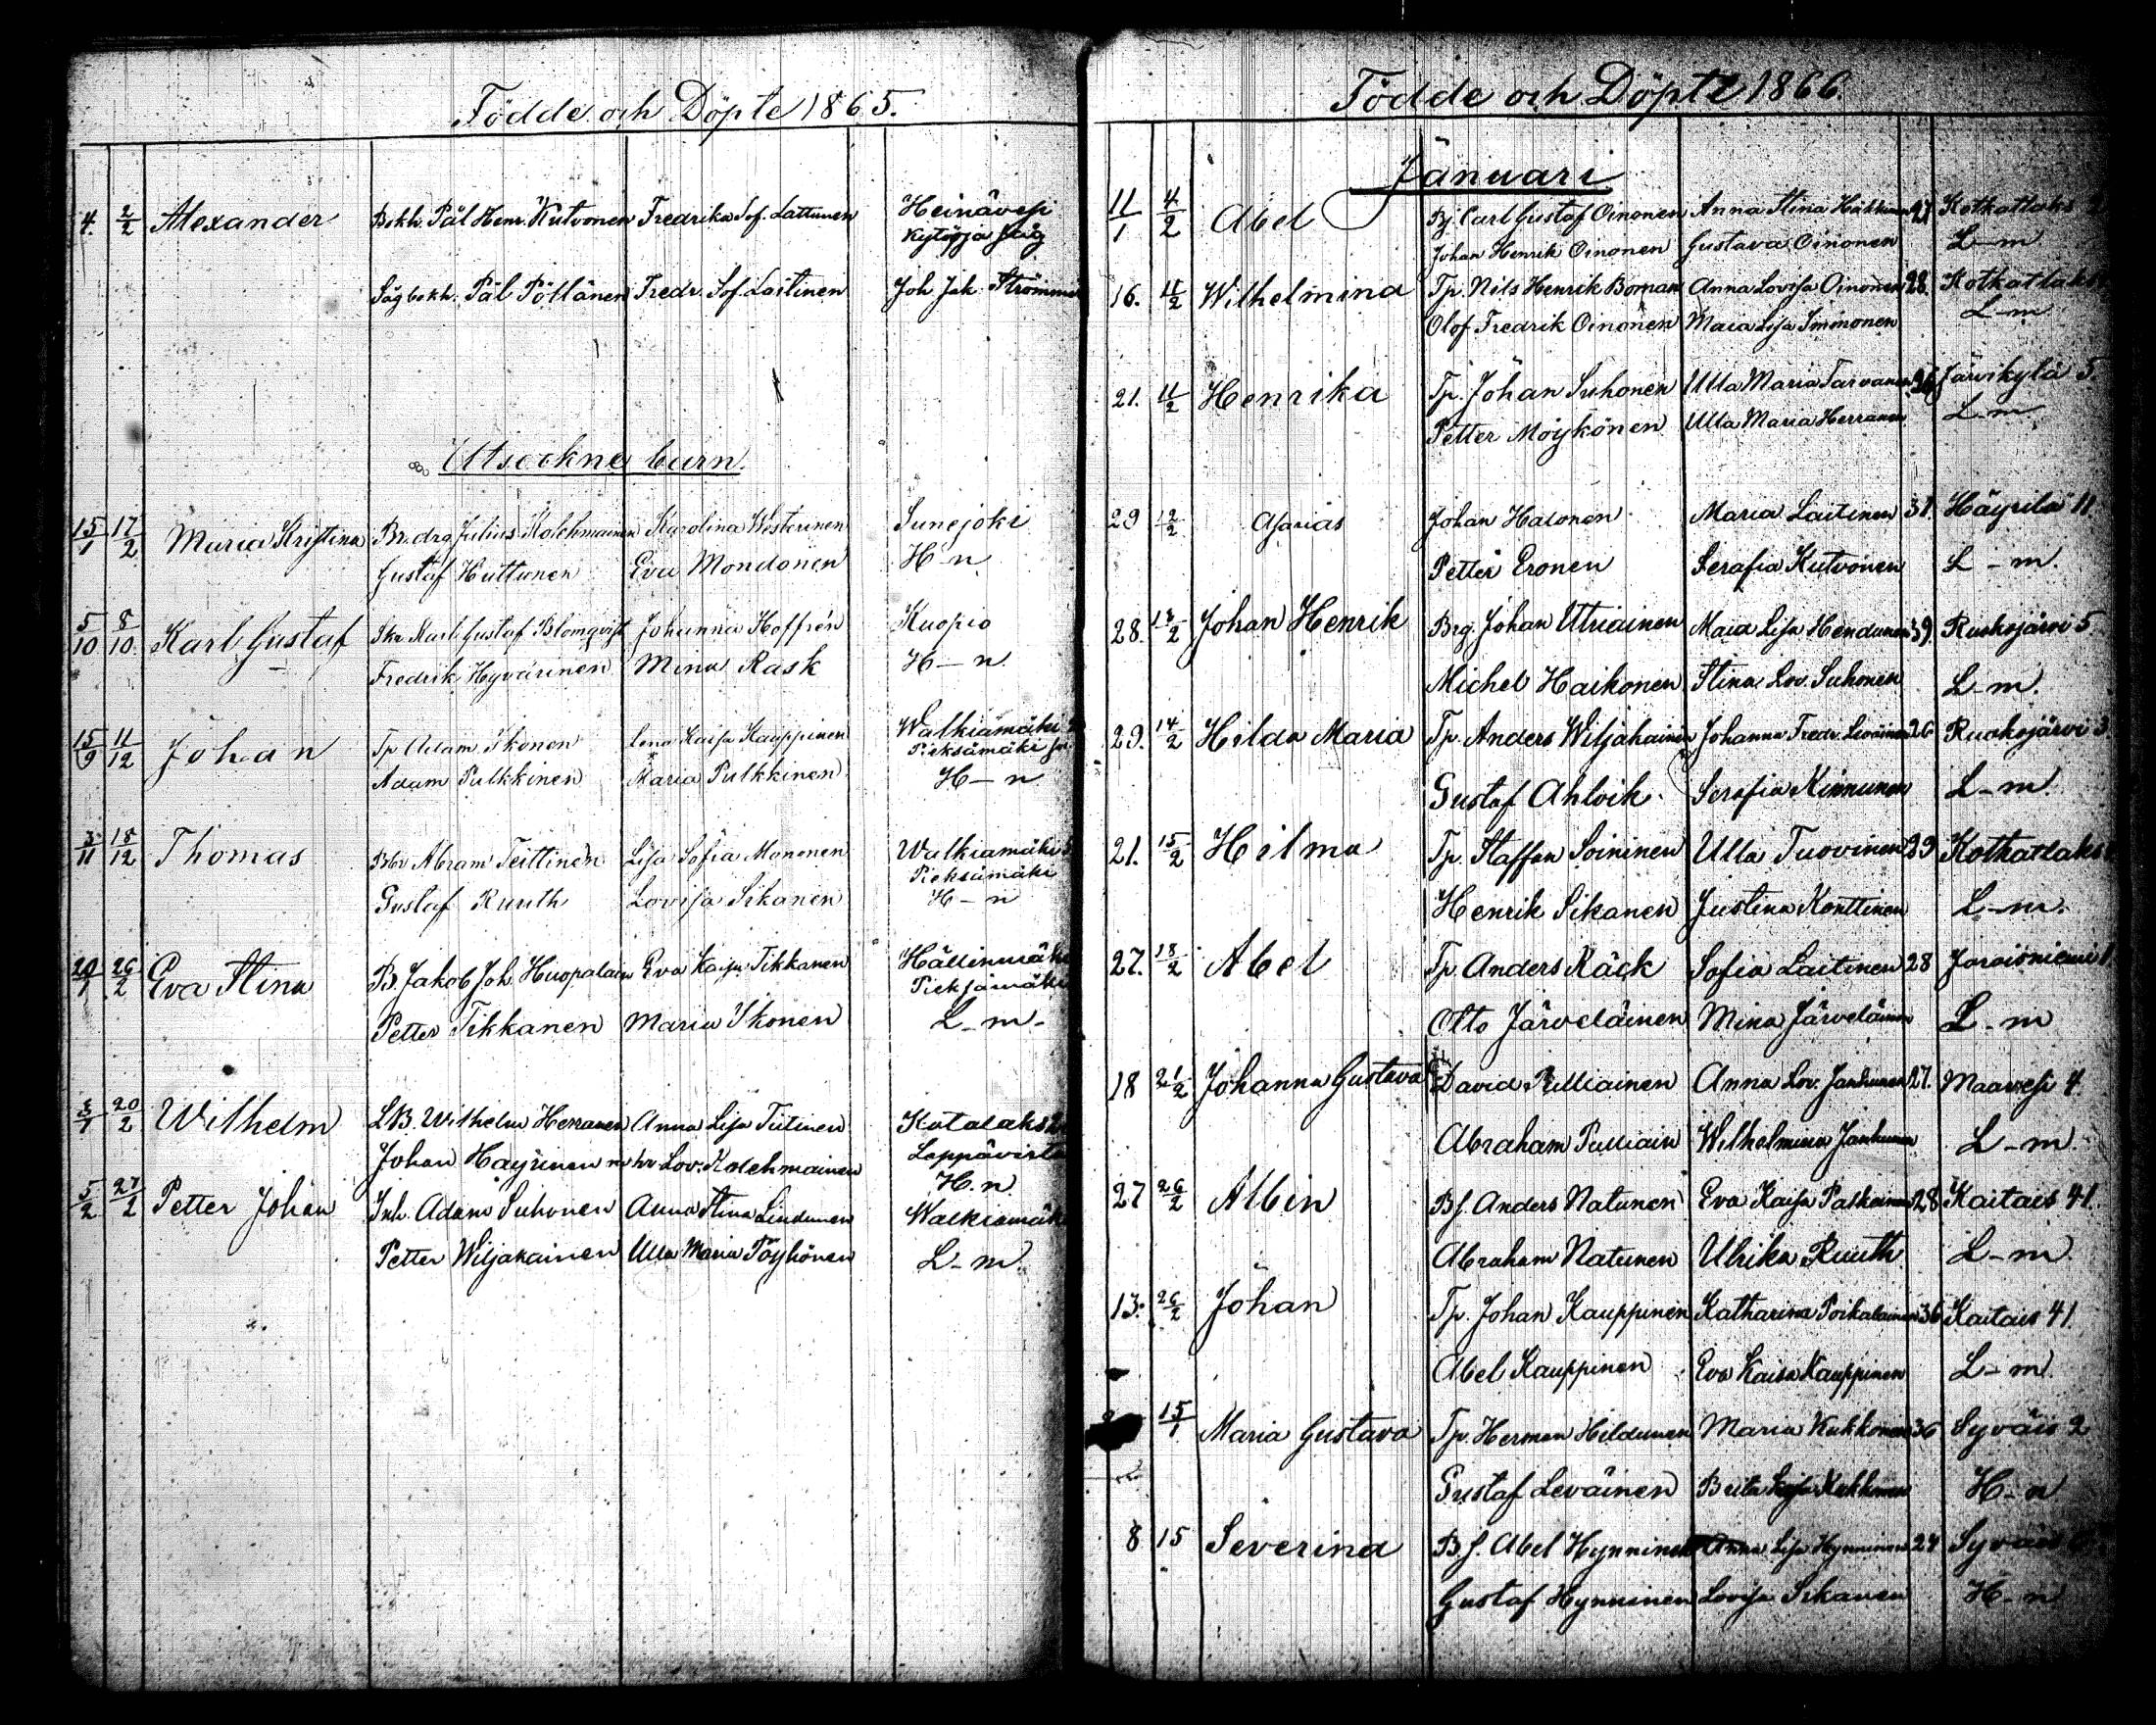 Födde och Döpte 1865.
4. 2/2 Alexander Bokh. Pål Henr. Kutvonen Fredrika Sof. Lattunen Heinävesi
Kytöoja såg
Sågbokh. Pål Pöllänen Fredr. Sof. Laitinen Joh. Jak. Strömmer
Utsockne barn.
15/1 17/2 Maria Kristina Br.drg. Julius Kolehmainen Karolina Westerinen Sunejoki
Gustaf Huttunen Eva Mondonen H-n
5/10 8/10 Karl Gustaf Skr Karl Gustaf Blomqvist Johanna Hoffrén Kuopio
Fredrik Hyvärinen Mina Rask H-n.
15/9 11/12 Johan Tp Adam Ikonen Lena Kaisa Kauppinen Walkiamäki
Pieksämäki
Adam Pulkkinen Maria Pulkkinen H-n
3/11 18/12 Thomas Abram Teittinen Lisa Sofia Mononen Walkiamäki
Pieksämäki
Gustaf Ruuth Lovisa Sikanen H-n
29/1 26/2 Eva Stina B. Jakob Joh. Huopalain Eva Kaisa Tikkanen Hällinmäki
Pieksämäki
Petter Tikkanen Maria Ikonen L-m-
20/2 Wilhelm L.B. Wilhelm Herranen Anna Lisa Tiitinen Kotalaks
Johan Häyrinen m hu Lov. Kolehmainen Leppävirta
H.n.
5/2 27/2 Petter Johan Inh. Adam Suhonen Anna Stina Lindunen Walkiamäki
Petter Wiljakainen Ulla Maria Pöyhönen L-m.
Födde och Döpte 1866.
Januari
11/1 4/2 Abel Carl Gustaf Oinonen Anna Stina 27 Kotkatlaks
Johan Henrik Oinonen Gustava Oinonen L-m
16. 11/2 Wilhelmina Tp. Nils Henrik Boman Anna Lovisa Oinonen 28. Kotkatlaks
Olof Fredrik Oinonen Maia Lisa Immonen L-m
21. 11/2 Henrika Tp. Johan Suhonen Ulla Maria Tarvanen 26 Järvikylä 5.
Petter Möykönen Ulla Maria Herranen L-m
29 12/2 Asarias Johan Halonen Maria Laitinen 31. Häyrilä 11
Petter Eronen Serafia Kutvonen L-m.
28. 13/2 Johan Henrik Brg. Johan Utriainen Maia Lisa Hendunen 39. Ruohojärvi 5.
Michel Haikonen Stina Lov. Suhonen L-m.
29. 14/2 Hilda Maria Tp. Anders Wiljakainen Johanna Fredr. Leväinen 26 Ruohojärvi 3
Gustaf Ahlvik. Serafia Kinnunen L-m.
21. 15/2 Hilma Tp. Staffan Soininen Ulla Tuovinen 29 Kotkatlaks
Henrik Sikanen Justina Konttinen L-m.
27. 18/2 Abel Tp. Anders Käck Sofia Laitinen 28 Jarviöniemi 1
Otto Järveläinen Mina Järveläinen L-m
18 21/2 Johanna Gustava David Pulliainen Anna Lov. Janhunen 27. Maavesi 4.
Abraham Pulliain Wilhelmina Janhunen L-m.
27 26/2 Albin Bf. Anders Natunen Eva Kaisa Paskainen 28 Kaitais 41.
Abraham Natunen Ulrika Ruuth L-m.
13. 26/2 Johan Tp. Johan Kauppinen Katharina Poikalainen 36 Kaitais 41.
Abel Kauppinen Eva Kaisa Kauppinen L-m.
15/1 Maria Gustava Tp. Herman Hildunen Maria Kukkonen 36 Syväis 2
Gustaf Leväinen Brita Lisa Kukkonen H-n
8 15 Severina Bf. Abel Hynninen Anna Lisa Hynninen 24 Syväis
Gustaf Hynninen Lovisa Sikanen H-n